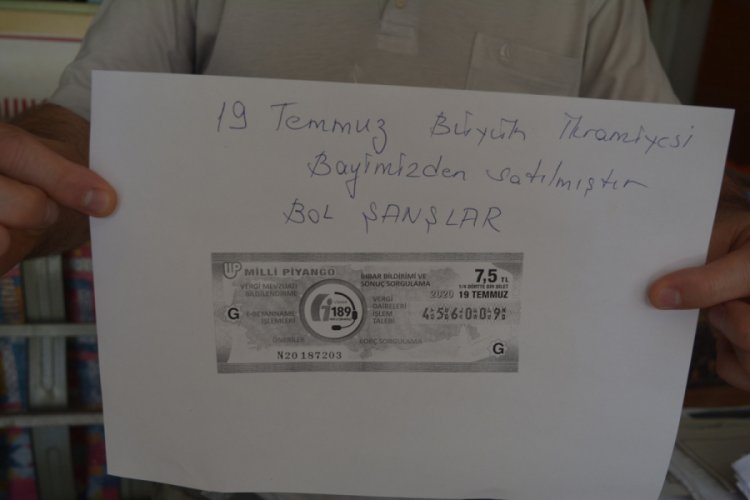 19 Temmuz Büyük İkramiyesi
Bayimizden satılmıştır
BOL ŞANŞLAR
MİLLİ PİYANGO
VERGİ MEVZUATI
BİLGİLENDİRME
İHBAR BİLDİRİMİ VE
SONUÇ SORGULAMA
7,5 TL
1/4 DÖRTTE BİR BİLET
2020 19 TEMMUZ
G
E-BEYANNAME
İŞLEMLERİ
189
VERGİ
DAİRELERİ
İŞLEM
TALEBİ
456009
ÖNERİLER
BORÇ SORGULAMA
G
N20187203